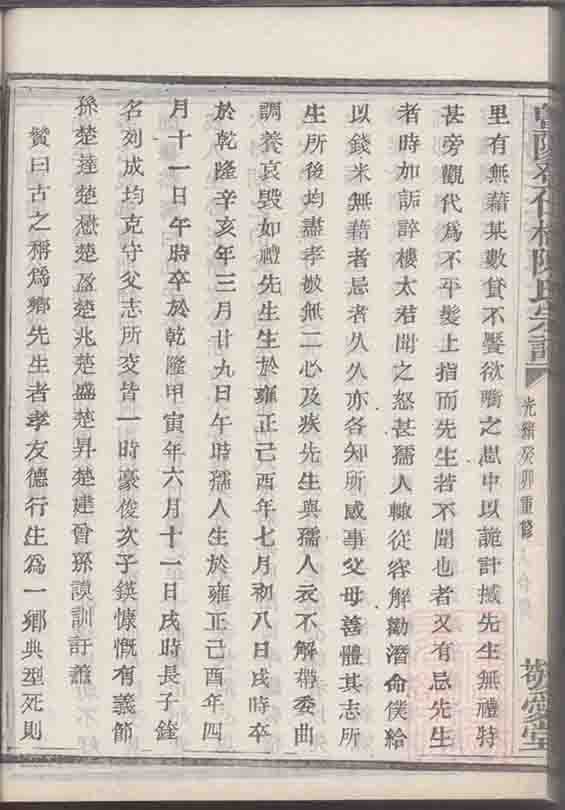 陳氏宗譜
光緒癸卯重修
敬愛堂
里有無藉某數貸不饜欲嚙之思中以詭計撼先生無禮特
甚旁觀代爲不平髮上指而先生若不聞也者又有忌先生
者時加詬誶樓太君聞之怒甚孺人輙從容解勸潛命僕給
以錢米無藉者忌者久久亦各知所感事父母善體其志所
生所後均盡孝敬無二心及疾先生與孺人衣不解帶委曲
調養哀毀如禮先生生於雍正己酉年七月初八日戌時卒
於乾隆辛亥年三月廿九日午時孺人生於雍正己酉年四
月十一日午時卒於乾隆甲寅年六月十一日戌時長子鋒
名列成均克守父志所交皆一時豪俊次子鍈慷慨有義節
孫楚達楚懋楚楚兆楚盛楚昇楚建曾孫謨訓訏
贊曰古之稱爲鄉先生者孝友德行生爲一鄉典型死則